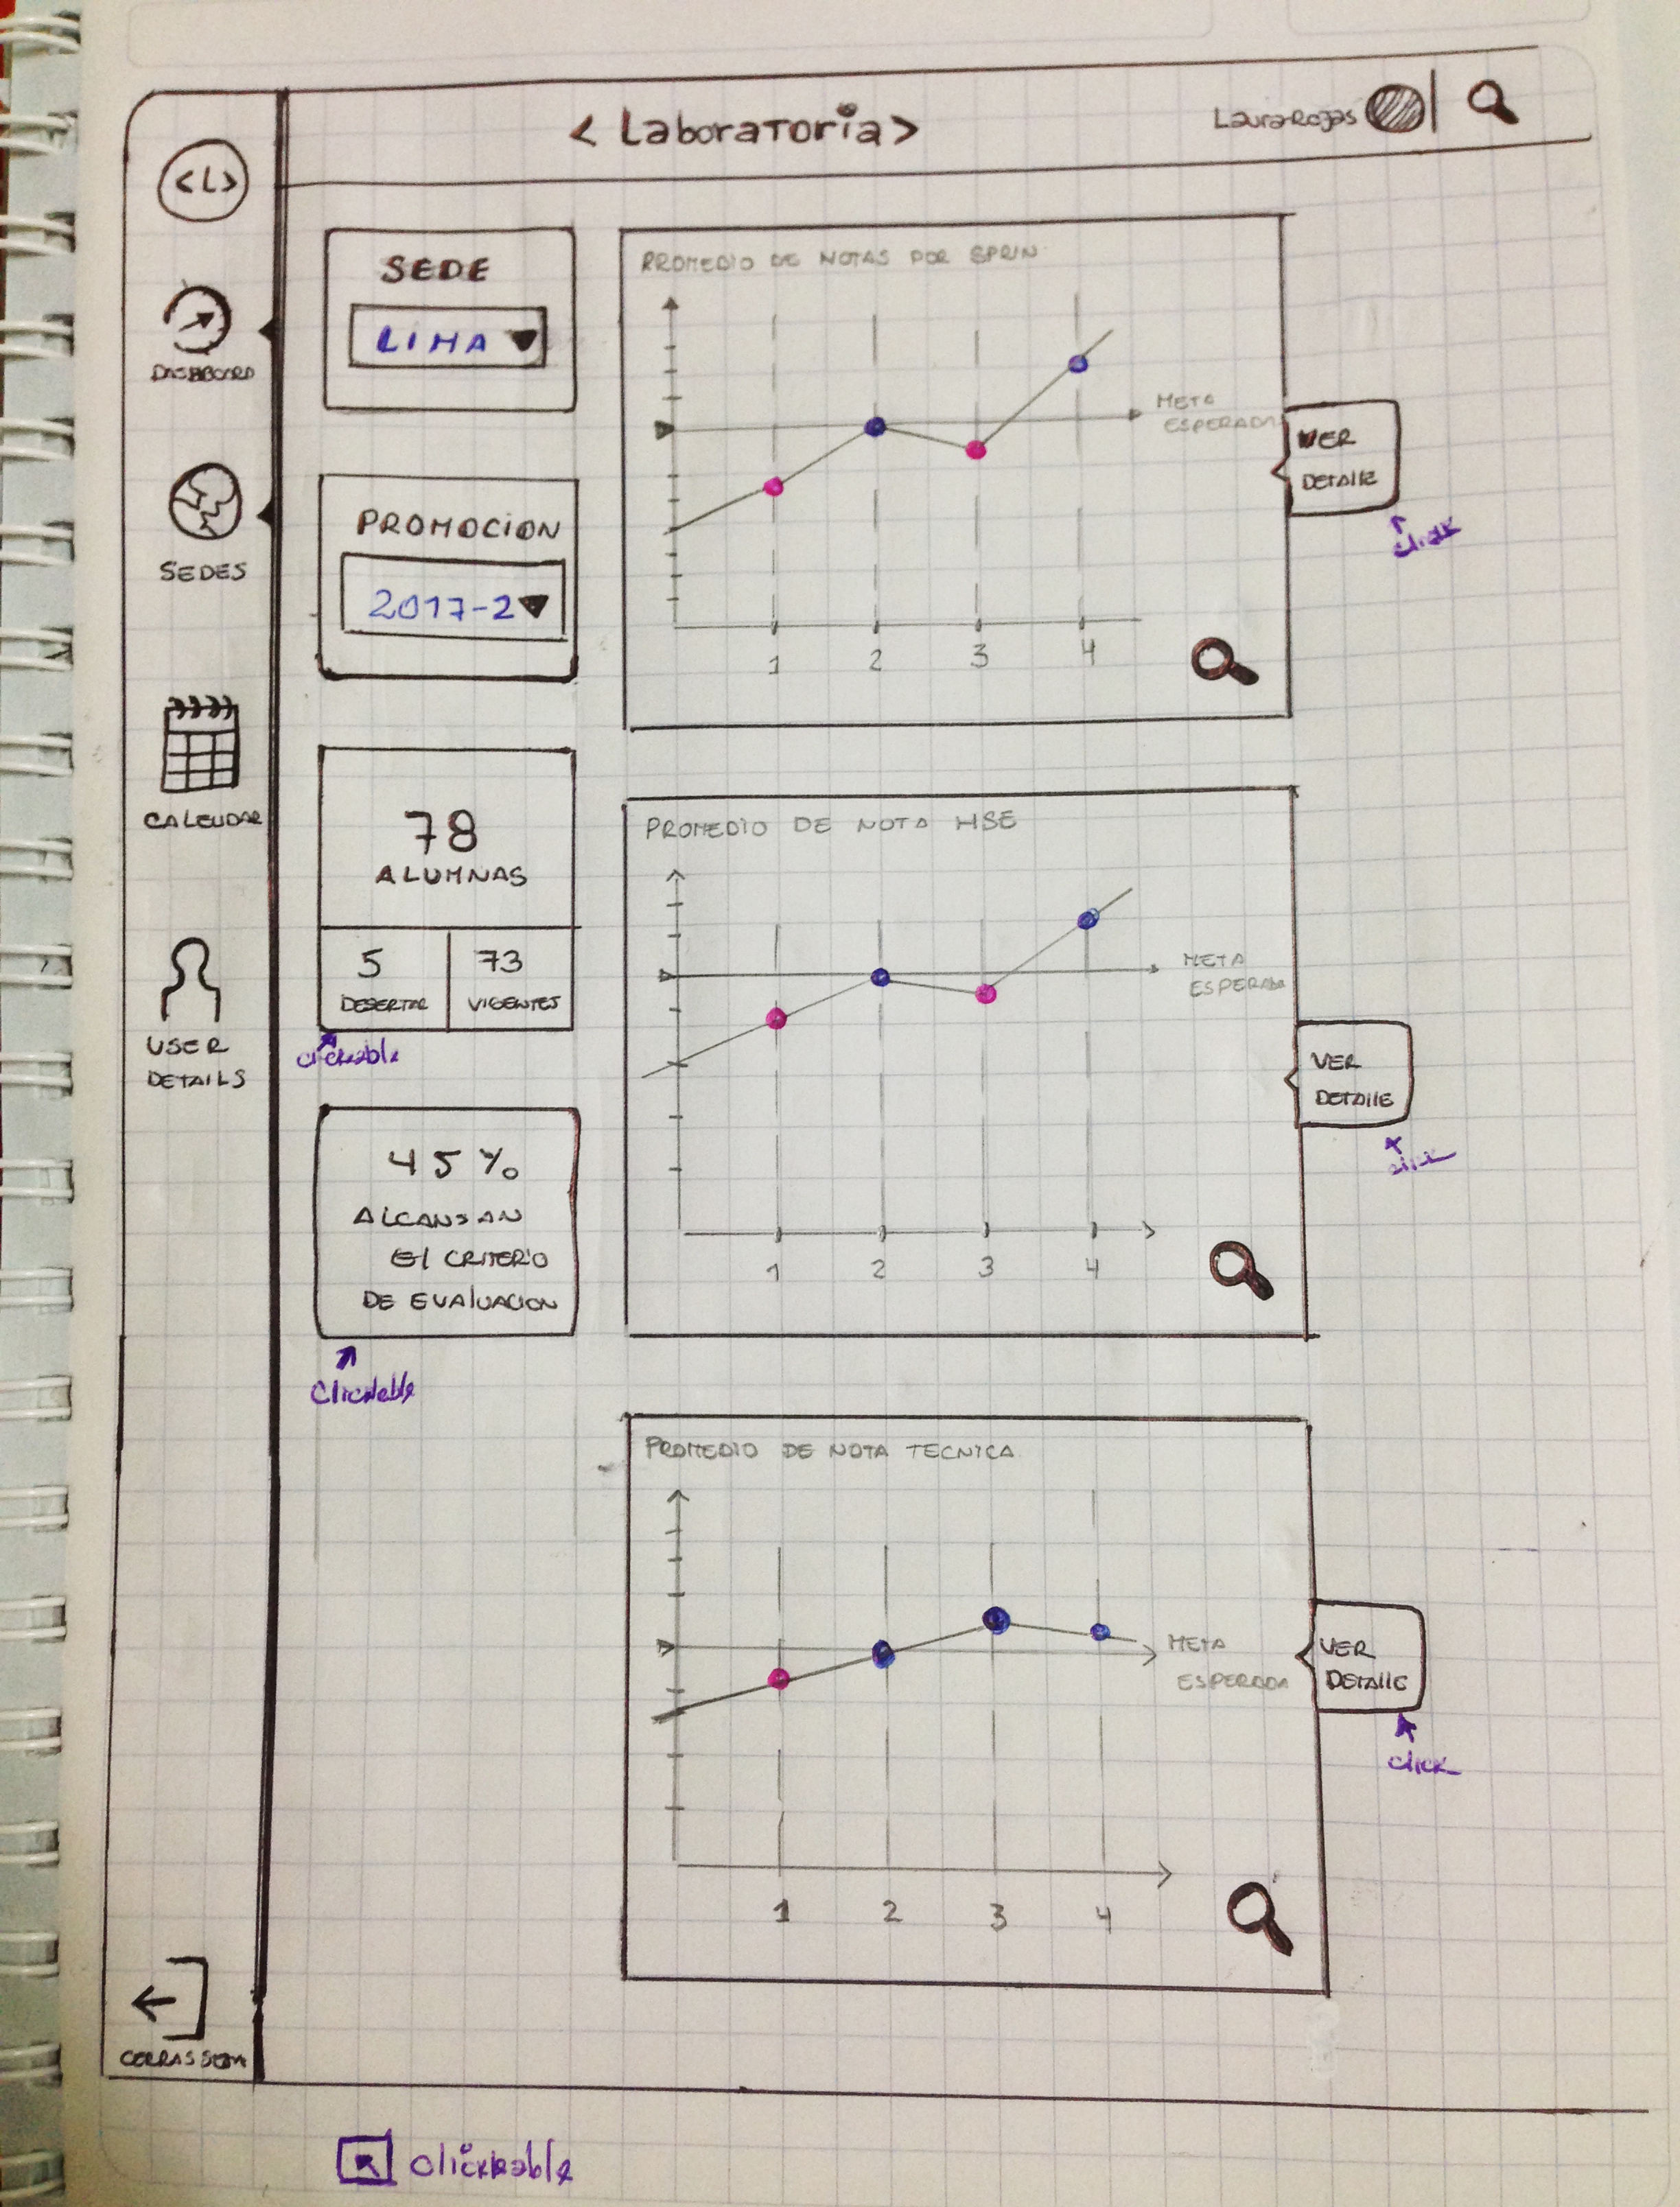 < Laboratoria >
Laura Rojas
<L>
DASHBOARD
SEDES
CALENDAR
USER
DETAILS
SEDE
LIMA
PROMOCION
2017-2
78
ALUMNAS
5
73
VIGENTES
clickeable
45%
ALCANSAN
El CRITERIO
DE EVALUACION
Clickeable
PROMEDIO DE NOTAS POR SPRIN
META
ESPERADA
1 2 3 4
VER
DETAllE
click
PROMEDIO DE NOTA HSE
META
ESPERADA
1 2 3 4
VER
DETAllE
click
PROMEDIO DE NOTA TECNICA
META
ESPERADA
1 2 3 4
VER
DETAllE
click
clickeable